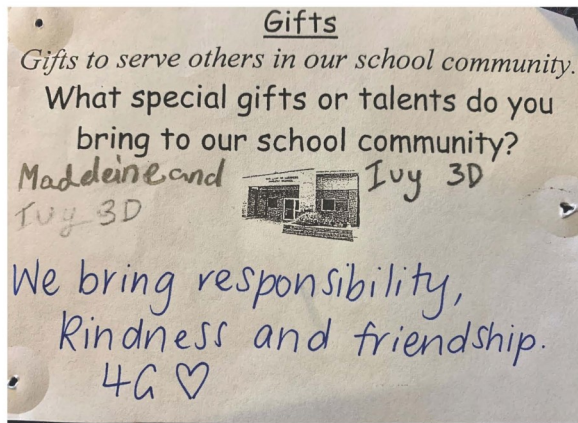 Gifts
Gifts to serve others in our school community.
What special gifts or talents do you
bring to our school community?
Madeleine and Ivy 3D
Ivy 3D
We bring responsibility,
kindness and friendship.
4G ♡